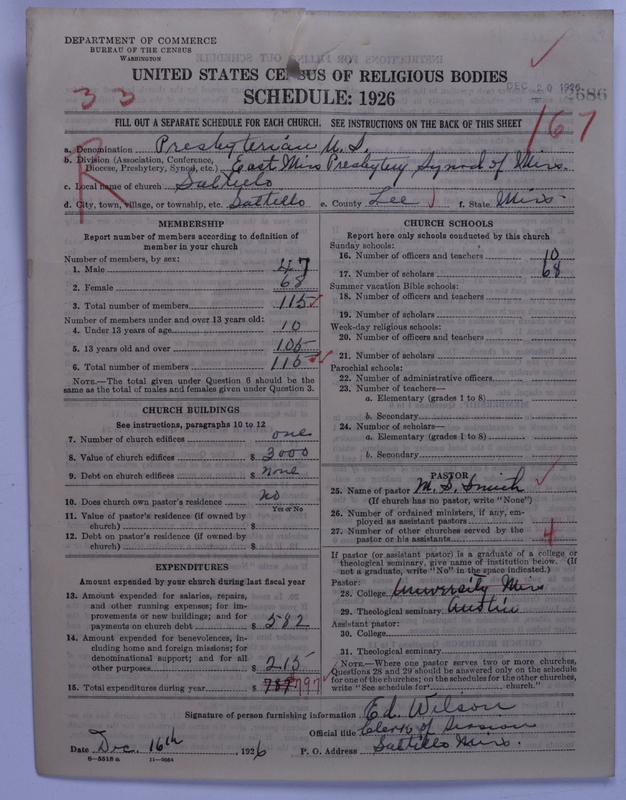 DEPARTMENT OF COMMERCE
BUREAU OF THE CENSUS
WASHINGTON
UNITED STATES CENSUS OF RELIGIOUS BODIES
DEC 20 1926
2686
SCHEDULE: 1926
3 3
FILL OUT A SEPARATE SCHEDULE FOR EACH CHURCH. SEE INSTRUCTIONS ON THE BACK OF THIS SHEET
167
R
a. Denomination Presbyterian U.S.
b. Division (Association, Conference, Diocese, Presbytery, Synod, etc.) East Miss Presbytery Synod of Miss.
c. Local name of church Saltillo
d. City, town, village, or township, etc. Saltillo e. County Lee f. State Miss.
MEMBERSHIP
Report number of members according to definition of
member in your church
Number of members, by sex:
1. Male 47
2. Female 68
3. Total number of members 115
Number of members under and over 13 years old:
4. Under 13 years of age 10
5. 13 years old and over 105
6. Total number of members 115
NOTE.—The total given under Question 6 should be the
same as the total of males and females given under Question 3.
CHURCH BUILDINGS
See instructions, paragraphs 10 to 12
7. Number of church edifices one
8. Value of church edifices $ 3000
9. Debt on church edifices $ none
10. Does church own pastor's residence no
Yes or No
11. Value of pastor's residence (if owned by
church) $
12. Debt on pastor's residence (if owned by
church) $
EXPENDITURES
Amount expended by your church during last fiscal year
13. Amount expended for salaries, repairs,
and other running expenses; for im-
provements or new buildings; and for
payments on church debt $ 582
14. Amount expended for benevolences, in-
cluding home and foreign missions; for
denominational support; and for all
other purposes $ 215
15. Total expenditures during year $ 787 797
CHURCH SCHOOLS
Report here only schools conducted by this church
Sunday schools:
16. Number of officers and teachers 10
17. Number of scholars 68
Summer vacation Bible schools:
18. Number of officers and teachers
19. Number of scholars
Week-day religious schools:
20. Number of officers and teachers
21. Number of scholars
Parochial schools:
22. Number of administrative officers
23. Number of teachers—
a. Elementary (grades 1 to 8)
b. Secondary
24. Number of scholars—
a. Elementary (grades 1 to 8)
b. Secondary
PASTOR
25. Name of pastor M. S. Smith
(If church has no pastor, write "None")
26. Number of ordained ministers, if any, em-
ployed as assistant pastors
27. Number of other churches served by the
pastor or his assistants 4
If pastor (or assistant pastor) is a graduate of a college or
theological seminary, give name of institution below. (If
not a graduate, write "No" in the space indicated.)
Pastor:
28. College University Miss
29. Theological seminary Austin
Assistant pastor:
30. College
31. Theological seminary
NOTE.—Where one pastor serves two or more churches,
Questions 28 and 29 should be answered only on the schedule
for one of the churches; on the schedules for the other churches,
write "See schedule for church."
Signature of person furnishing information Ed. Wilson
Official title Clerk of Session
Date Dec. 16th, 1926 P. O. Address Saltillo Miss.
6—5518 a 11—9054